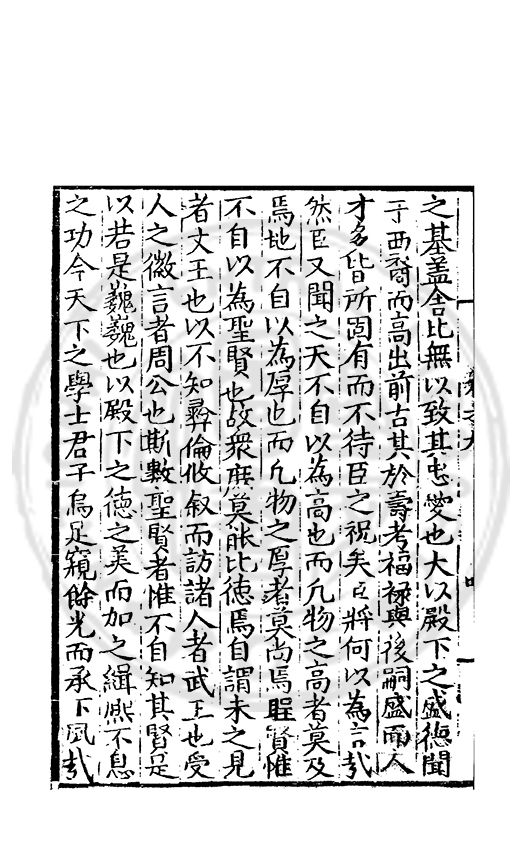 之基蓋舍此無以致其忠愛也大以殿下之盛德聞
于西裔而高出前古其於壽考福祿與後嗣盛而人
才多皆所固有而不待臣之祝矣臣將何以為言哉
然臣又聞之天不自以為高也而凢物之高者莫及
焉地不自以為厚也而凢物之厚者莫尚焉聖賢惟
不自以為聖賢也故衆庻莫能比德焉自謂未之見
者文王也以不知彛倫攸叙而訪諸人者武王也受
人之微言者周公也斯數聖賢者惟不自知其賢是
以若是巍巍也以殿下之德之美而加之緝熈不息
之功今天下之學士君子烏足窺餘光而承下風哉